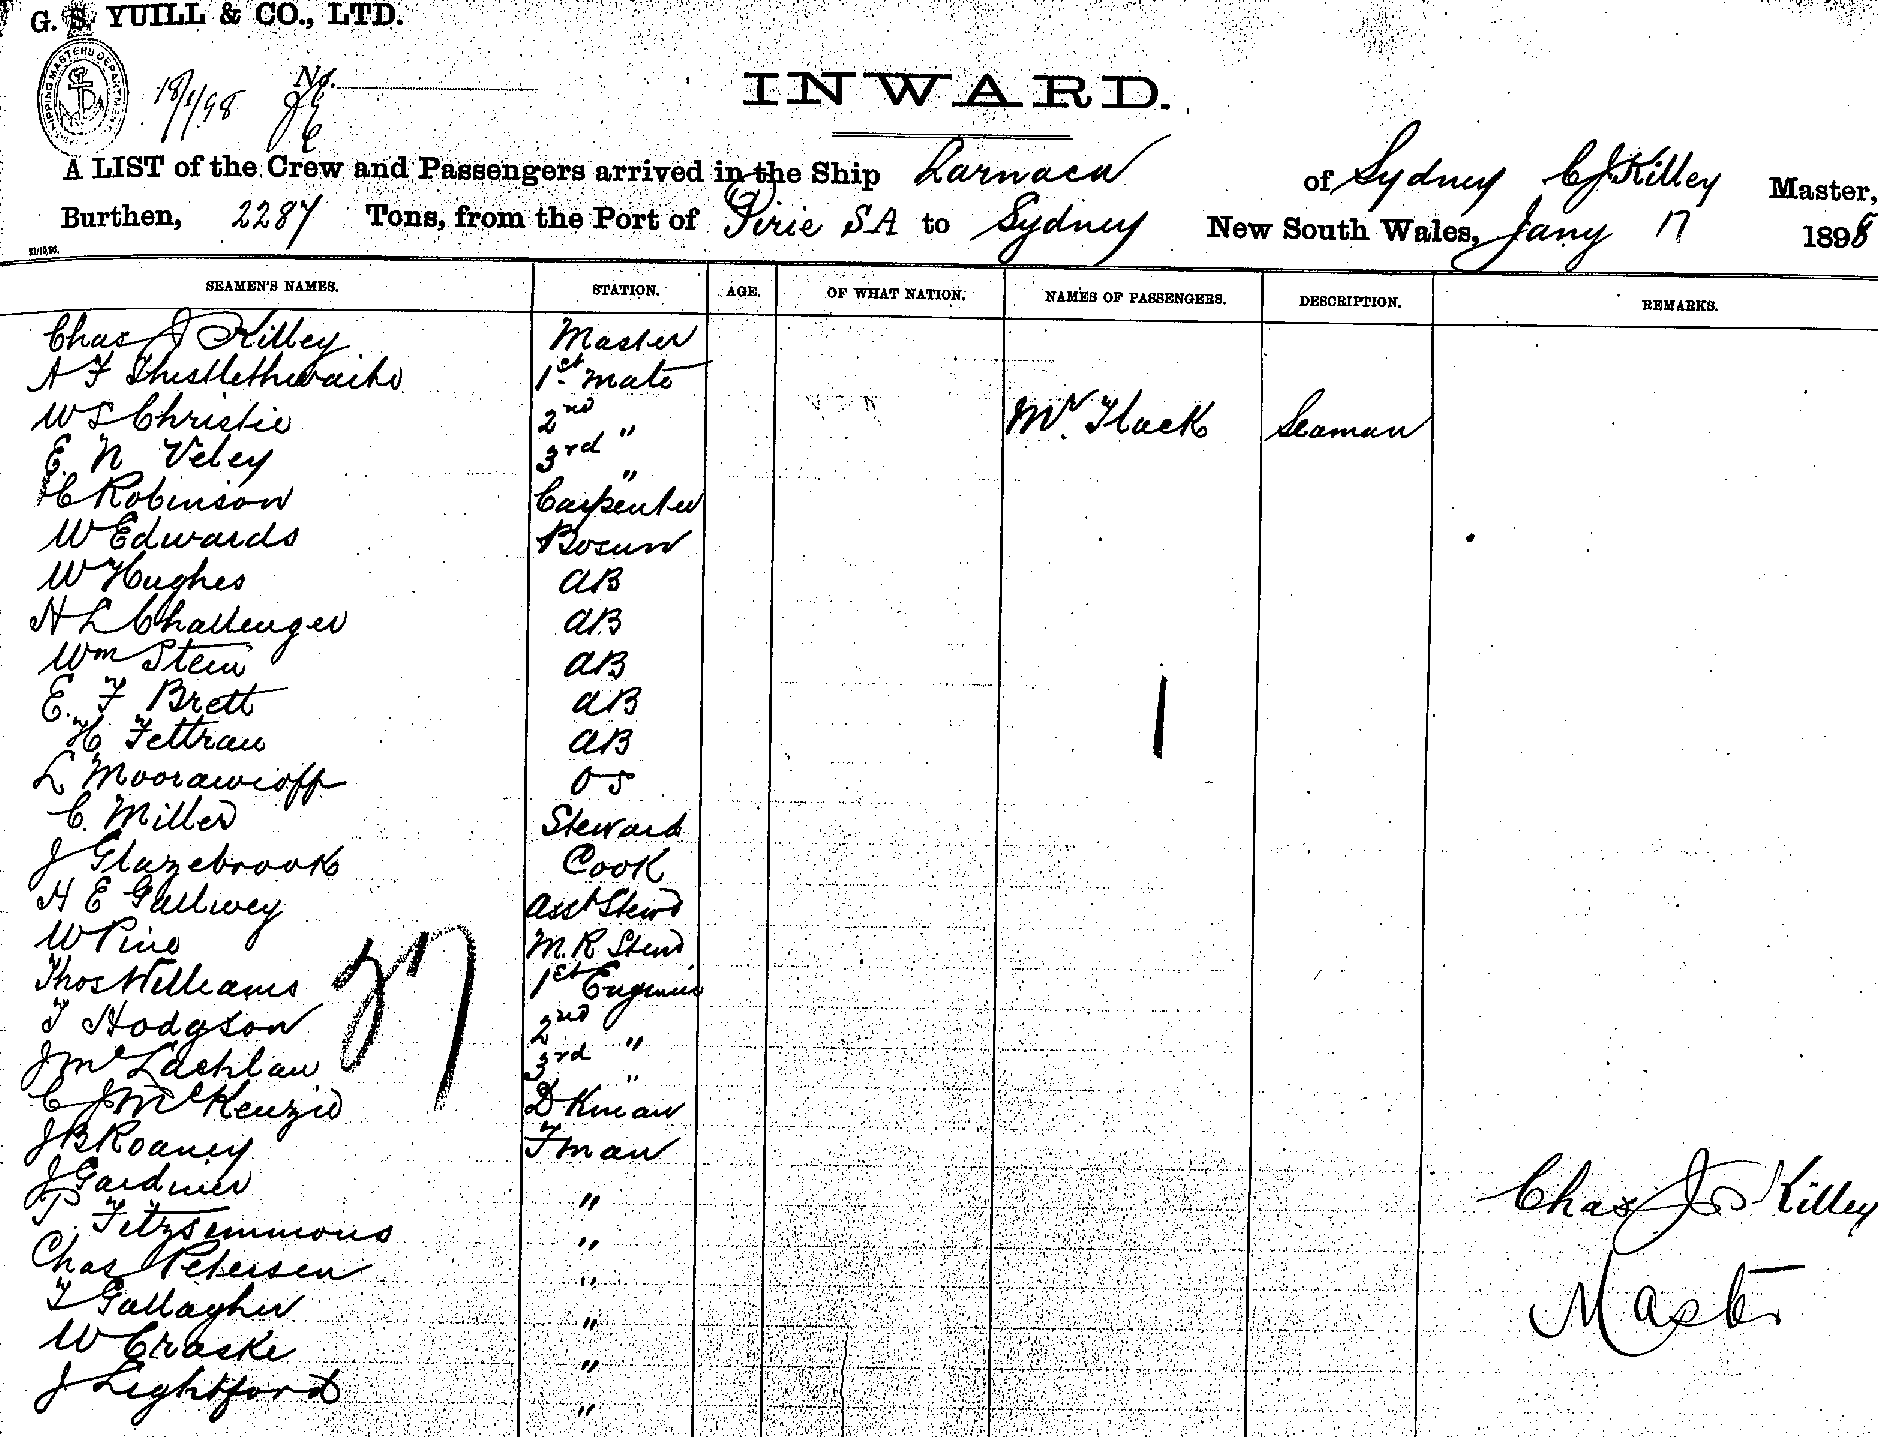 G. S. YUILL & CO., LTD.
18/1/98 No.
INWARD.
A LIST of the Crew and Passengers arrived in the Ship Larnaca of Sydney C J Killey Master,
Burthen, 2287 Tons, from the Port of Pirie SA to Sydney New South Wales, Jany 17 1898
SEAMEN'S NAMES. STATION. AGE. OF WHAT NATION. NAMES OF PASSENGERS. DESCRIPTION. REMARKS.
Chas J Killey Master
A F Thistlethwaite 1st Mate
W S Christie 2nd " Mr. Flack Seaman
E. N Veley 3rd "
C Robinson Carpenter
W Edwards Bosun
W Hughes AB
H L Challenger AB
Wm Stein AB
E. F Brett AB
H Fettrau AB
L Moorawioff OS
C. Miller Steward
J Glazebrook Cook
H E Gallwey Asst Stewd
W Pine M.R Stewd
Thos Williams 1st Engineer
T Hodgson 2nd "
J McLachlan 3rd "
C J McKenzie D Kman
J B Roaney Fman
J Gardner "
T. Fitzsimmons "
Chas Petersen "
T Gallagher "
W Craske "
J Lightford "
27
1
Chas J Killey
Master